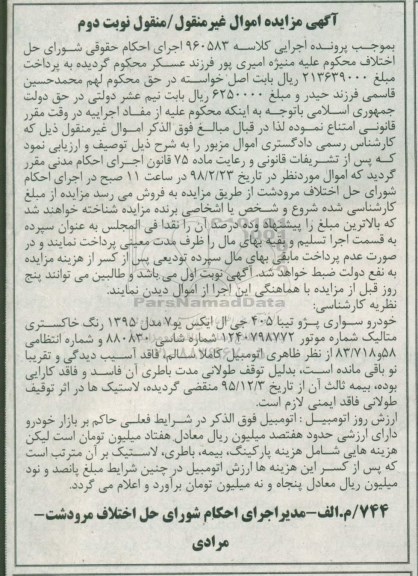 آگهی مزایده اموال غیرمنقول/منقول نوبت دوم
بموجب پرونده اجرایی کلاسه ۹۶۰۵۸۳ اجرای احکام حقوقی شورای حل
اختلاف محکوم علیه منیژه امیری پور فرزند عسکر محکوم گردیده به پرداخت
مبلغ ۲۱۳۶۳۹۰۰۰ ریال بابت اصل خواسته در حق محکوم لهم محمدحسین
قاسمی فرزند حیدر و مبلغ ۶۲۵۰۰۰۰ ریال بابت نیم عشر دولتی در حق دولت
جمهوری اسلامی باتوجه به اینکه محکوم علیه از مفاد اجراییه در وقت مقرر
قانونی امتناع نموده لذا در قبال مبالغ فوق الذکر اموال غیرمنقول ذیل که
کارشناس رسمی دادگستری اموال مزبور را به شرح ذیل توصیف و ارزیابی نمود
که پس از تشریفات قانونی و رعایت ماده ۷۵ قانون اجرای احکام مدنی مقرر
گردید که اموال موردنظر در تاریخ ۹۸/۲/۲۳ در ساعت ۱۱ صبح در اجرای احکام
شورای حل اختلاف مرودشت از طریق مزایده به فروش می رسد مزایده از مبلغ
کارشناسی شده شروع و شخص یا اشخاصی برنده مزایده شناخته خواهند شد
که بالاترین مبلغ را پیشنهاد و ده درصد آن را نقدا فی المجلس به عنوان سپرده
به قسمت اجرا تسلیم و بقیه بهای مال را ظرف مدت معینی پرداخت نمایند و در
صورت عدم پرداخت مابقی بهای مال سپرده تودیعی پس از کسر از هزینه مزایده
به نفع دولت ضبط خواهد شد. آگهی نوبت اول می باشد و طالبین می توانند پنج
روز قبل از مزایده با هماهنگی این اجرا از اموال دیدن نمایند.
نظریه کارشناسی:
خودرو سواری پژو تیپا ۴۰۵ جی ال ایکس یو۷ مدل ۱۳۹۵ رنگ خاکستری
متالیک شماره موتور ۱۲۴۰۷۹۸۷۷۲ شماره شاسی ۸۸۰۸۳۰ و شماره انتظامی
۵۸و۸۳/۷۱۸ از نظر ظاهری اتومبیل کاملا سالم، فاقد آسیب دیدگی و تقریبا
نو باقی مانده است، بدلیل توقف طولانی مدت باطری آن فاسد و فاقد کارایی
بوده، بیمه ثالث آن از تاریخ ۹۵/۱۲/۳ منقضی گردیده، لاستیک ها در اثر توقیف
طولانی فاقد ایمنی لازم است.
ارزش روز اتومبیل : اتومبیل فوق الذکر در شرایط فعلی حاکم بر بازار خودرو
دارای ارزشی حدود هفتصد میلیون ریال معادل هفتاد میلیون تومان است لیکن
هزینه هایی شامل هزینه پارکینگ، بیمه، باطری، لاستیک بر آن مترتب است
که پس از کسر این هزینه ها ارزش اتومبیل در چنین شرایط مبلغ پانصد و نود
میلیون ریال معادل پنجاه و نه میلیون تومان برآورد و اعلام می گردد.
۷۴۴/م.الف-مدیراجرای احکام شورای حل اختلاف مرودشت-
مرادی